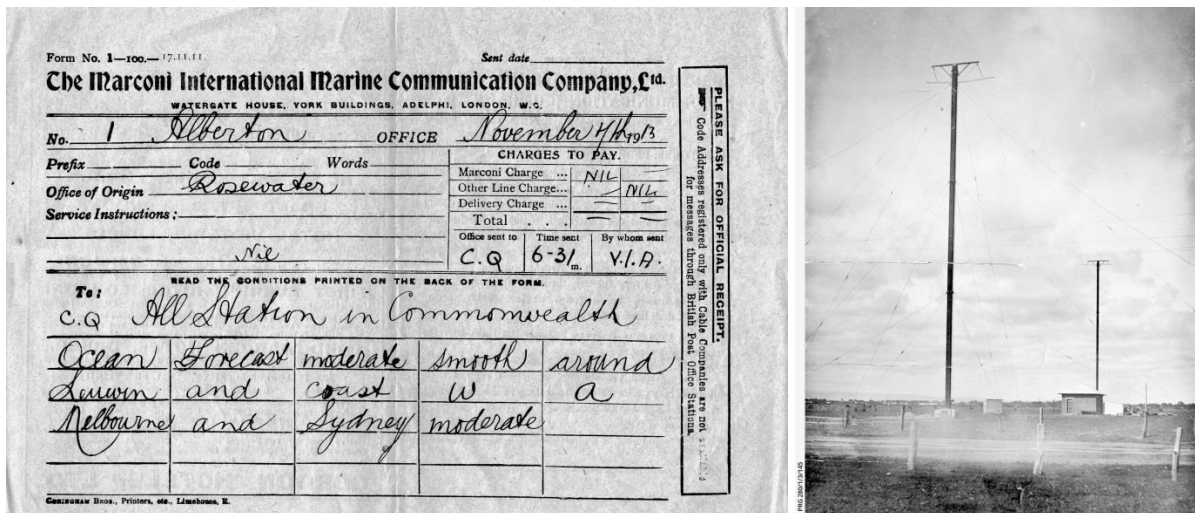 Form No. 1—100.—17.11.11
Sent date
The Marconi International Marine Communication Company, Ltd.
WATERGATE HOUSE, YORK BUILDINGS, ADELPHI, LONDON, W.C.
No. 1 Alberton OFFICE November 1913
Prefix Code Words
Office of Origin Rosewater
Service Instructions:
Nil
CHARGES TO PAY.
Marconi Charge ... NIL
Other Line Charge... NIL
Delivery Charge ...
Total . . .
Office sent to Time sent By whom sent
C.Q 6-31 m. V.I.A.
READ THE CONDITIONS PRINTED ON THE BACK OF THE FORM.
To:
C.Q All Station in Commonwealth
Ocean Forecast moderate smooth around
Leuwin and coast W A
Melbourne and Sydney moderate
CORINGHAM BROS., Printers, etc., Limehouse, E.
PLEASE ASK FOR OFFICIAL RECEIPT.
Code Addresses registered only with Cable Companies are not
for messages through British Post Office Stations.
PRG 280/1/3/145